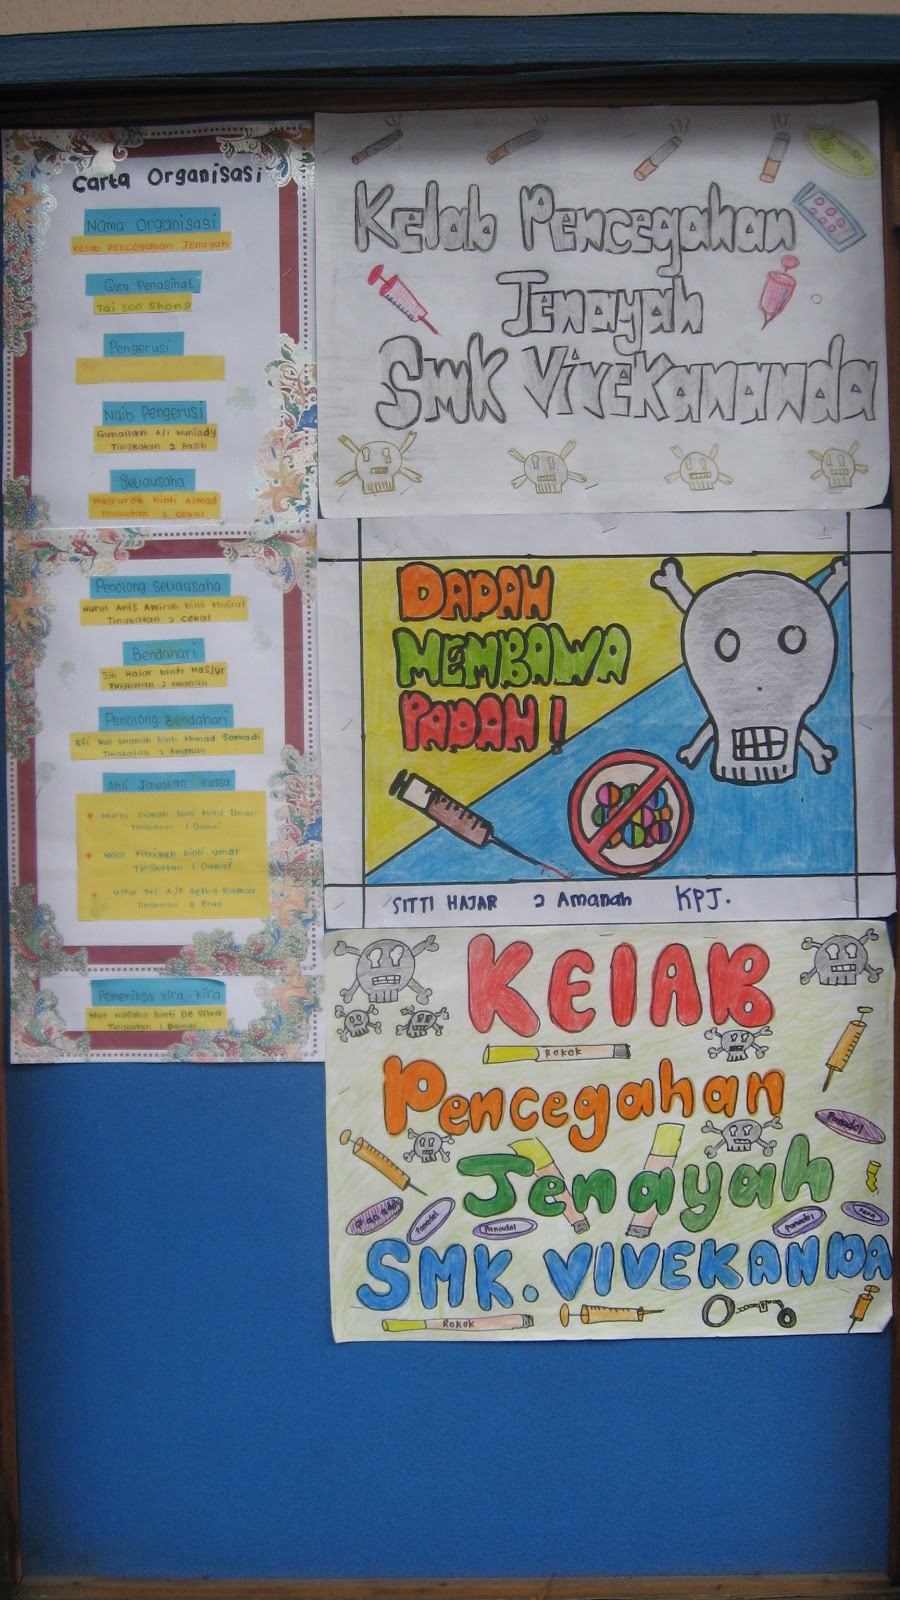 Carta Organisasi
Nama Organisasi
Kelab Pencegahan Jenayah
Guru Penasihat
Tai Soo Shong
Pengerusi
Naib Pengerusi
Gunallan A/l Muniady
Tingkatan 2 Fasih
Setiausaha
Masturah binti Ahmad
Tingkatan 2 Cekal
Penolong Setiausaha
Nurul Anis Amirah binti Khairul
Tingkatan 2 Cekal
Bendahari
Siti Hajar binti Masjur
Tingkatan 2 Amanah
Penolong Bendahari
Efi Nur Imanah binti Ahmad Somadi
Tingkatan 2 Amanah
Ahli Jawatan kuasa
Nurul Dianah binti Mohd
Tingkatan 1 Damai
Noor Fitriyah binti umar
Tingkatan 1 Damai
Usha Sri A/P Selva Kumar
Tingkatan 2
Pemeriksa Kira-Kira
Nur binti De Silva
Tingkatan 1 Damai
Kelab Pencegahan
Jenayah
SMK VIVEKANANDA
DADAH
MEMBAWA
PADAH!
SITTI HAJAR 2 Amanah KPJ.
KELAB
ROKOK
Pencegahan
Panadol
Jenayah
Panadol
Panadol
Panadol
SMK. VIVEKANNDA
ROKOK